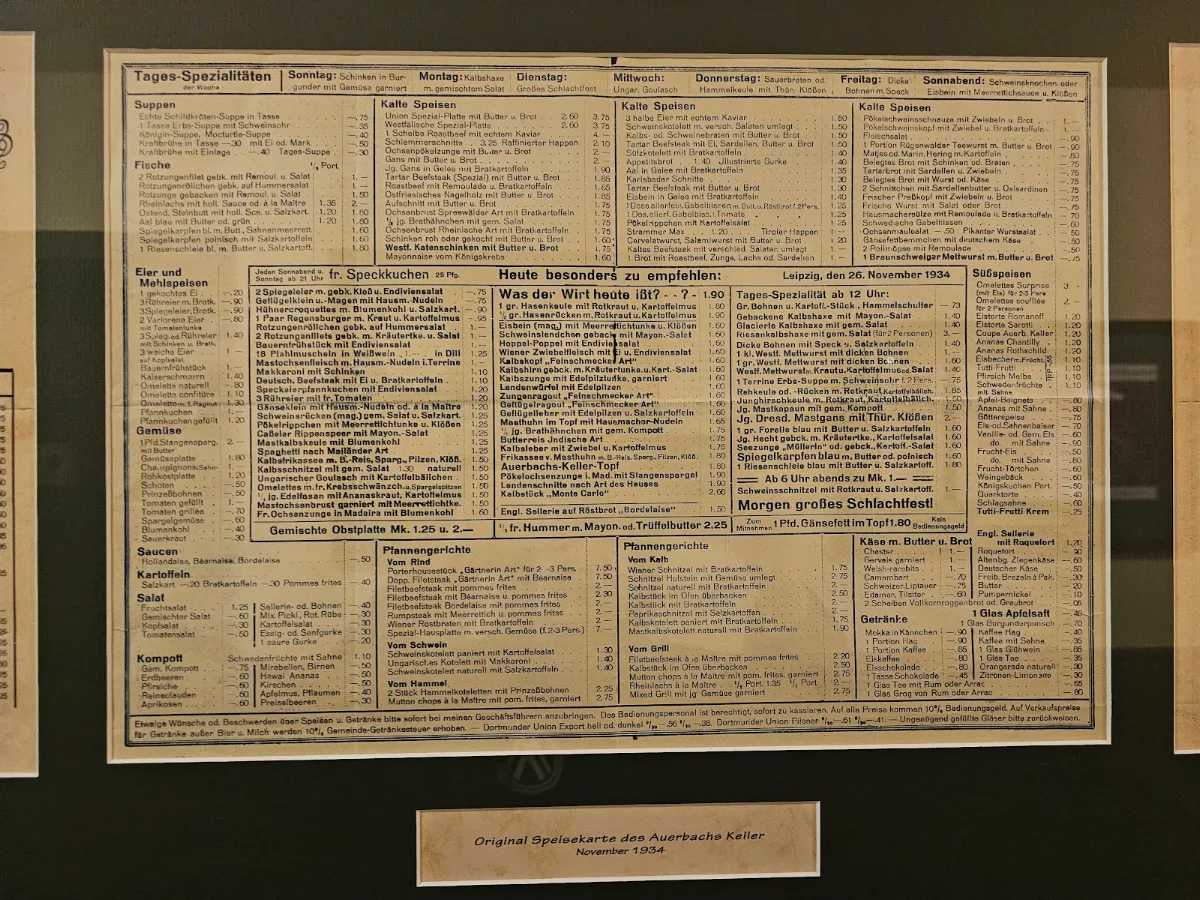 Tages-Spezialitäten
der Woche
Sonntag: Schinken in Burgunder mit Gemüse garniert
Montag: Kalbshaxe m. gemischtem Salat
Dienstag: Großes Schlachtfest
Mittwoch: Ungar. Goulasch
Donnerstag: Sauerbraten od. Hammelkeule mit Thür. Klößen
Freitag: Dicke Bohnen m. Speck
Sonnabend: Schweinsknochen oder Eisbein m. Meerrettichsauce u. Klößen
Suppen
Echte Schildkröten-Suppe in Tasse —.75
1 Tasse Erbs-Suppe mit Schweinsohr —.35
Königin-Suppe, Mocturtle-Suppe —.40
Kraftbrühe in Tasse —.30 mit Ei od. Mark —.50
Kraftbrühe mit Einlage —.40 Tages-Suppe —.30
Fische ½ Port.
2 Rotzungenfilet gebk. mit Remoul. u. Salat 1.—
Rotzungenröllchen gebk. auf Hummersalat 1.—
Rotzunge gebacken mit Remoul. u. Salat 1.50
Rheinlachs mit holl. Sauce od. à la Maître 1.35 2.—
Ostend. Steinbutt mit holl. Sce. u. Salzkart. 1.20 1.80
Aal blau mit Butter od. grün 1.20 1.80
Spiegelkarpfen bl. m. Butt., Sahnenmeerrett. 1.60
Spiegelkarpfen polnisch mit Salzkartoffeln 1.60
1 Riesenschleie bl. m. Butter u. Salzkartoff. 1.80
Kalte Speisen
Union Spezial-Platte mit Butter u. Brot 2.60 3.75
Westfälische Spezial-Platte 2.60 3.75
1 Scheibe Roastbeef mit echtem Kaviar 4.—
Schlemmerschnitte 3.25 Raffinierter Happen 2.10
Ochsenpökelzunge mit Butter u. Brot 2.—
Gans mit Butter u. Brot 2.—
Jg. Gans in Gelee mit Bratkartoffeln 1.90
Tartar Beefsteak (Spezial) mit Butter u. Brot 1.85
Roastbeef mit Remoulade u. Bratkartoffeln 1.85
Ostfriesisches Nagelholz mit Butter u. Brot 1.75
Aufschnitt mit Butter u. Brot 1.75
Ochsenbrust Spreewälder Art mit Bratkartoffeln 1.75
½ jg. Brathähnchen mit gem. Salat 1.75
Ochsenbrust Rheinische Art mit Bratkartoffeln 1.75
Schinken roh oder gekocht mit Butter u. Brot 1.60
Westf. Katenschinken mit Butter u. Brot 1.75
Mayonnaise vom Königskrebs 1.60
Kalte Speisen
3 halbe Eier mit echtem Kaviar 1.50
Schweinskotelett m. versch. Salaten umlegt 1.50
Kalbs- od. Schweinebraten mit Butter u. Brot 1.50
Tartar Beefsteak mit Ei, Sardellen, Butter u. Brot 1.50
Sülzkotelett mit Bratkartoffeln 1.40
Appetitsbrot 1.40 Jllustrierte Gurke 1.40
Aal in Gelee mit Bratkartoffeln 1.35
Karlsbader Schnitte 1.30
Tartar Beefsteak mit Butter u. Brot 1.30
Eisbein in Gelee mit Bratkartoffeln 1.25
Pökelrippchen mit Kartoffelsalat 1.25
Strammer Max 1.20 Tiroler Happen 1.25
Cervelatwurst, Salamiwurst mit Butter u. Brot 1.20
Kaltes Beefsteak mit verschied. Salaten umlegt 1.—
1 Brot mit Roastbeef, Zunge, Lachs od. Sardellen 1.—
Kalte Speisen
Pökelschweinsschnauze mit Zwiebeln u. Brot 1.—
Pökelschweinskopf mit Zwiebeln u. Bratkartoffeln 1.—
Fleischsalat —.90
1 Portion Rügenwalder Teewurst m. Butter u. Brot —.90
Matjes od. Marin. Hering m. Kartoffeln —.80
Belegtes Brot mit Schinken od. Braten —.75
Tartarbrot mit Sardellen u. Zwiebeln —.75
Belegtes Brot mit Wurst od. Käse —.75
2 Schnittchen mit Sardellenbutter u. Oelsardinen —.75
Frischer Preßkopf mit Zwiebeln u. Brot —.75
Frische Wurst mit Salat oder Brot —.75
Hausmachersülze mit Remoulade u. Bratkartoffeln —.70
Schwedische Gabelbissen —.60
Ochsenmaulsalat —.50 Pikanter Wurstsalat —.50
Gänsefettbemmchen mit deutschem Käse —.50
2 Rollmöpse mit Remoulade —.50
1 Braunschweiger Mettwurst m. Butter u. Brot —.50
Eier und Mehlspeisen
1 gekochtes Ei —.20
3 Rühreier m. Bratk. —.90
3 Spiegeleier, Bratk. —.90
2 Verlorene Eier —.80
mit Tomatentunke
3 Spieg. od. Rühreier 1.40
mit Schinken u. Bratk.
3 weiche Eier 1.—
auf Kopfsalat
Bauernfrühstück 1.—
Kaiserschmarrn 1.40
Omelette naturell —.80
Omelette confitüre 1.10
Omelette m. f. Ragout 1.30
Pfannkuchen 1.—
Pfannkuchen gefüllt 1.20
Gemüse
1 Pfd. Stangensparg. 2.—
mit Butter
Gemüseplatte 1.80
Champignons/Sahn- 1.—
Rohkostplatte 1.20
Schoten —.50
Prinzeßbohnen —.50
Tomaten gefüllt —.50
Tomaten grillée —.70
Spargelgemüse —.60
Blumenkohl —.40
Sauerkraut —.30
Jeden Sonnabend u. Sonntag ab 21 Uhr fr. Speckkuchen 25 Pfg.
Heute besonders zu empfehlen:
Leipzig, den 26. November 1934
2 Spiegeleier m. gebk. Kloß u. Endiviensalat —.75
Geflügelklein u.-Magen mit Hausm.-Nudeln —.75
Hühnercroquettes m. Blumenkohl u. Salzkart. —.90
1 Paar Regensburger m. Kraut u. Kartoffelmus —.95
Rotzungenröllchen gebk. auf Hummersalat 1.—
2 Rotzungenfilets gebk. m. Kräutertke. u. Salat 1.—
Bauernfrühstück mit Endiviensalat 1.—
18 Pfahlmuscheln in Weißwein 1.— in Dill 1.25
Mastochsenfleisch m. Hausm.-Nudeln i. Terrine 1.—
Makkaroni mit Schinken 1.10
Deutsch. Beefsteak mit Ei u. Bratkartoffeln 1.10
Speckeierpfannkuchen mit Endiviensalat 1.20
3 Rühreier m. fr. Tomaten 1.20
Gänseklein mit Hausm.-Nudeln od. à la Maître 1.20
Schweinsrücken (mag.) gem. Salat u. Salzkart. 1.25
Pökelrippchen mit Meerrettichtunke u. Klößen 1.25
Caßeler Rippenspeer mit Mayon.-Salat 1.40
Mastkalbskeule mit Blumenkohl 1.40
Spaghetti nach Mailänder Art 1.50
Kalbsfrikassee m. B.-Reis, Sparg., Pilzen, Klöß. 1.50
Kalbsschnitzel mit gem. Salat 1.30 naturell 1.50
Ungarischer Goulasch mit Kartoffelbällchen 1.50
Omelettes m. fr. Krebsschwänzch. u. Spargelspitzen 1.50
½ jg. Edelfasan mit Ananaskraut, Kartoffelmus 1.50
Mastochsenbrust garniert mit Meerrettichtke. 1.50
Fr. Ochsenzunge in Madeira mit Blumenkohl 1.50
Was der Wirt heute ißt? - - ? - 1.90
1 gr. Hasenkeule mit Rotkraut u. Kartoffelmus 1.80
½ gr. Hasenrücken m. Rotkraut u. Kartoffelmus 1.90
Eisbein (mag.) mit Meerrettichtunke u. Klößen
Schweinslendchen geback. mit Mayon.-Salat
Hoppel-Poppel mit Endiviensalat
Wiener Zwiebelfleisch mit Ei u. Endiviensalat
Kalbskopf „Feinschmecker Art"
Kalbshirn gebk. m. Kräutertunke u. Kart.-Salat
Kalbszunge mit Edelpilztutke, garniert
Lendenwürfel mit Edelpilzen
Zungenragout „Feinschmecker Art"
Geflügelragout „Feinschmecker Art"
Geflügelleber mit Edelpilzen u. Salzkartoffeln
Masthuhn im Topf mit Hausmacher-Nudeln
½ jg. Brathähnchen mit gem. Kompott 1.75
Butterreis Jndische Art
Kalbsleber mit Zwiebel u. Kartoffelmus
Frikassee v. Masthuhn m. B.-Reis, Sparg., Pilzen, Klöß.
Auerbachs-Keller-Topf 1.80
Pökelochsenzunge i. Mad. mit Stangenspargel 1.90
Lendenschnitte nach Art des Hauses 1.90
Kalbstück „Monte Carlo" 2.60
Engl. Sellerie auf Röstbrot „Bordelaise" 1.50
Tages-Spezialität ab 12 Uhr:
Gr. Bohnen u. Kartoff.-Stück., Hammelschulter —.73
Gebackene Kalbshaxe mit Mayon.-Salat
Glacierte Kalbshaxe mit gem. Salat
Riesenkalbshaxe mit gem. Salat (für 2 Personen) 3.—
Dicke Bohnen mit Speck u. Salzkartoffeln
1 kl. Westf. Mettwurst mit dicken Bohnen
1 gr. Westf. Mettwurst mit dicken Bohnen
Westf. Mettwurst m. Kraut u. Kartoffelmus od. Salat
1 Terrine Erbs-Suppe m. Schweinsohr f. 2 Pers. —.75
Rehkeule od. -Rücken m. Rotkraut, Kartoffelbälch. 1.85
Junghirschkeule m. Rotkraut, Kartoffelbälch. 1.75
Jg. Mastkapaun mit gem. Kompott 1.50
Jg. Dresd. Mastgans mit Thür. Klößen
1 gr. Forelle blau mit Butter u. Salzkartoff.
Jg. Hecht gebck. m. Kräutertke., Kartoffelsalat 1.60
Seezunge „Müllerin" od. gebck., Kartoff.-Salat 1.60
Spiegelkarpfen blau m. Butter od. polnisch 1.60
1 Riesenschleie blau mit Butter u. Salzkartoff. 1.80
Ab 6 Uhr abends zu Mk. 1.—
Schweinsschnitzel mit Rotkraut u. Salzkartoff. 1.—
Morgen großes Schlachtfest!
Gemischte Obstplatte Mk. 1.25 u. 2.—
½ fr. Hummer m. Mayon. od. Trüffelbutter 2.25
Zum Mitnehmen 1 Pfd. Gänsefett im Topf 1.80 Kein Bedienungsgeld
Süßspeisen
Omelettes Surprise 3.—
(mit Eis) für 2-3 Pers.
Omelettes soufflée 2.—
für 2 Personen
Eistorte Romanoff 1.20
Eistorte Sarotti 1.20
Coupe Auerb. Keller 1.20
Ananas Chantilly 1.20
Ananas Rothschild 1.20
Eisbecher m. Frücht. 1.10
Tutti-Frutti 1.10
Pfirsich Melba 1.10
Schwedenfrüchte 1.10
mit Sahne
Apfel-Beignets —.80
Ananas mit Sahne —.80
Götterspeise —.75
Eis- od. Sahnenbaiser —.70
Vanille- od. Gem. Eis —.60
do. mit Sahne
Frucht-Eis —.50
do. mit Sahne —.60
Frucht-Törtchen —.60
Weingebäck —.60
Königskuchen Port. —.50
Quarktorte —.40
Schlagsahne —.50
Tutti-Frutti-Krem —.25
Engl. Sellerie mit Roquefort 1.20
Saucen
Hollandaise, Béarnaise, Bordelaise —.50
Kartoffeln
Salzkart. —.20 Bratkartoffeln —.30 Pommes frites —.40
Salat
Fruchtsalat 1.25
Gemischter Salat —.60
Kopfsalat —.50
Tomatensalat —.50
Sellerie- od. Bohnen —.40
Mix. Pickl., Rot. Rübe —.50
Kartoffelsalat —.30
Essig- od. Senfgurke —.30
1 saure Gurke —.20
Kompott Schwedenfrüchte mit Sahne 1.10
Gem. Kompott —.75
Erdbeeren —.60
Pfirsiche —.60
Reineclauden —.60
Aprikosen —.60
Mirabellen, Birnen —.50
Hawai Ananas —.50
Kirschen —.50
Apfelmus, Pflaumen —.40
Preiselbeeren —.30
Pfannengerichte
Vom Rind
Porterhousestück „Gärtnerin Art" für 2-3 Pers. 7.50
Dopp. Filetsteak „Gärtnerin Art" mit Béarnaise 7.50
Filetbeefsteak mit pommes frites 2.—
Filetbeefsteak m. Béarnaise u. pommes frites 2.30
Filetbeefsteak Bordelaise mit pommes frites 2.—
Rumpsteak mit Meerrettich u. pommes frites 2.—
Wiener Rostbraten mit Bratkartoffeln 2.—
Spezial-Hausplatte m. versch. Gemüse (f. 2-3 Pers.) 7.—
Vom Schwein
Schweinskotelett paniert mit Kartoffelsalat 1.30
Ungarisches Kotelett mit Makkaroni 1.40
Schweinskotelett naturell mit Salzkartoffeln 1.40
Vom Hammel
2 Stück Hammelkoteletten mit Prinzeßbohnen 2.25
Mutton chops à la Maître m. pom. frites, garniert 2.75
Pfannengerichte
Vom Kalb
Wiener Schnitzel mit Bratkartoffeln 1.75
Schnitzel Holstein mit Gemüse umlegt 2.75
Schnitzel naturell mit Bratkartoffeln 2.—
Kalbstück im Ofen überbacken 2.50
Kalbstück mit Bratkartoffeln 2.—
Paprikaschnitzel mit Salzkartoffeln 2.—
Kalbskotelett paniert mit Bratkartoffeln 1.75
Mastkalbskotelett naturell mit Bratkartoffeln 1.90
Vom Grill
Filetbeefsteak à la Maître mit pommes frites 2.20
Kalbstück im Ofen überbacken 2.50
Mutton chops à la Maître mit pom. frites, garniert 2.75
Rheinlachs à la Maître ½ Port. 1.35 ¹/₁ Port. 2.—
Mixed Grill mit jg. Gemüse garniert 2.75
Käse m. Butter u. Brot
Chester 1.—
Gervais garniert 1.—
Welsh-rarebits 1.—
Camembert —.70
Schweizer, Liptauer —.75
Edamer, Tilsiter —.60
Roquefort —.90
Altenbg. Ziegenkäse —.60
Deutscher Käse —.50
Freib. Brezeln à Pak. —.30
Butter —.20
Pumpernickel —.10
2 Scheiben Vollkornroggenbrot od. Graubrot —.05
Getränke
1 Glas Apfelsaft —.45
Mokka in Kännchen —.90
1 Portion Hag —.90
1 Portion Kaffee —.85
Eiskaffee —.80
Eisschokolade —.80
1 Tasse Schokolade —.45
1 Glas Burgunderpunsch —.70
Kaffee Hag —.40
Kaffee mit Sahne —.35
1 Glas Glühwein —.85
1 Glas Tee —.35
Orangerade naturell —.30
Zitronen-Limonade —.30
1 Glas Tee mit Rum oder Arrac —.65
1 Glas Grog von Rum oder Arrac —.80
Etwaige Wünsche od. Beschwerden über Speisen u. Getränke bitte sofort bei meinen Geschäftsführern anzubringen. Das Bedienungspersonal ist berechtigt, sofort zu kassieren. Auf alle Preise kommen 10% Bedienungsgeld. Auf Verkaufspreise
für Getränke außer Bier u. Milch werden 10% Gemeinde-Getränkesteuer erhoben. — Dortmunder Union Export hell od. dunkel —.56 —.38. Dortmunder Union Pilsner —.61 —.41. — Ungenügend gefüllte Gläser bitte zurückweisen.
Original Speisekarte des Auerbachs Keller
November 1934